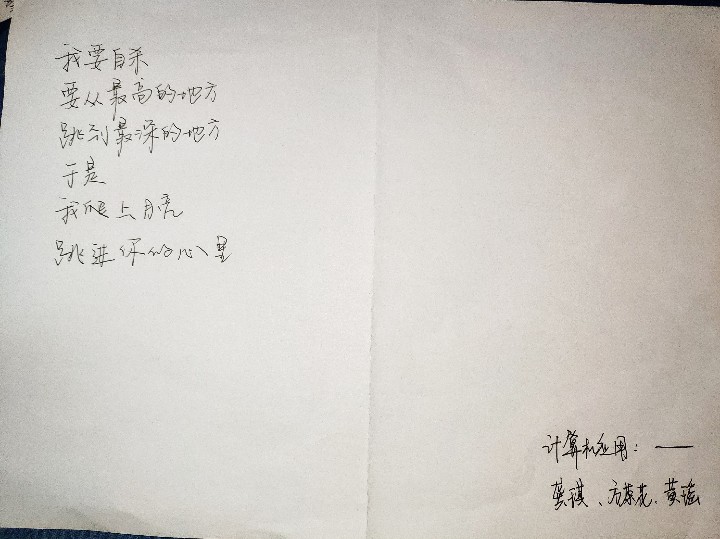 我要自杀
要从最高的地方
跳到最深的地方
于是
我爬上月亮
跳进你的心里
计算机应用：——
龚琪、方蔡花、黄瑶